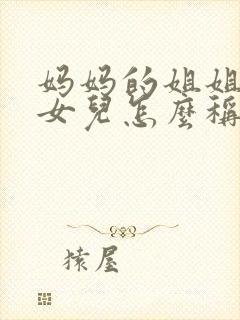 妈妈的姐姐
女兒怎麼稱
猿屋